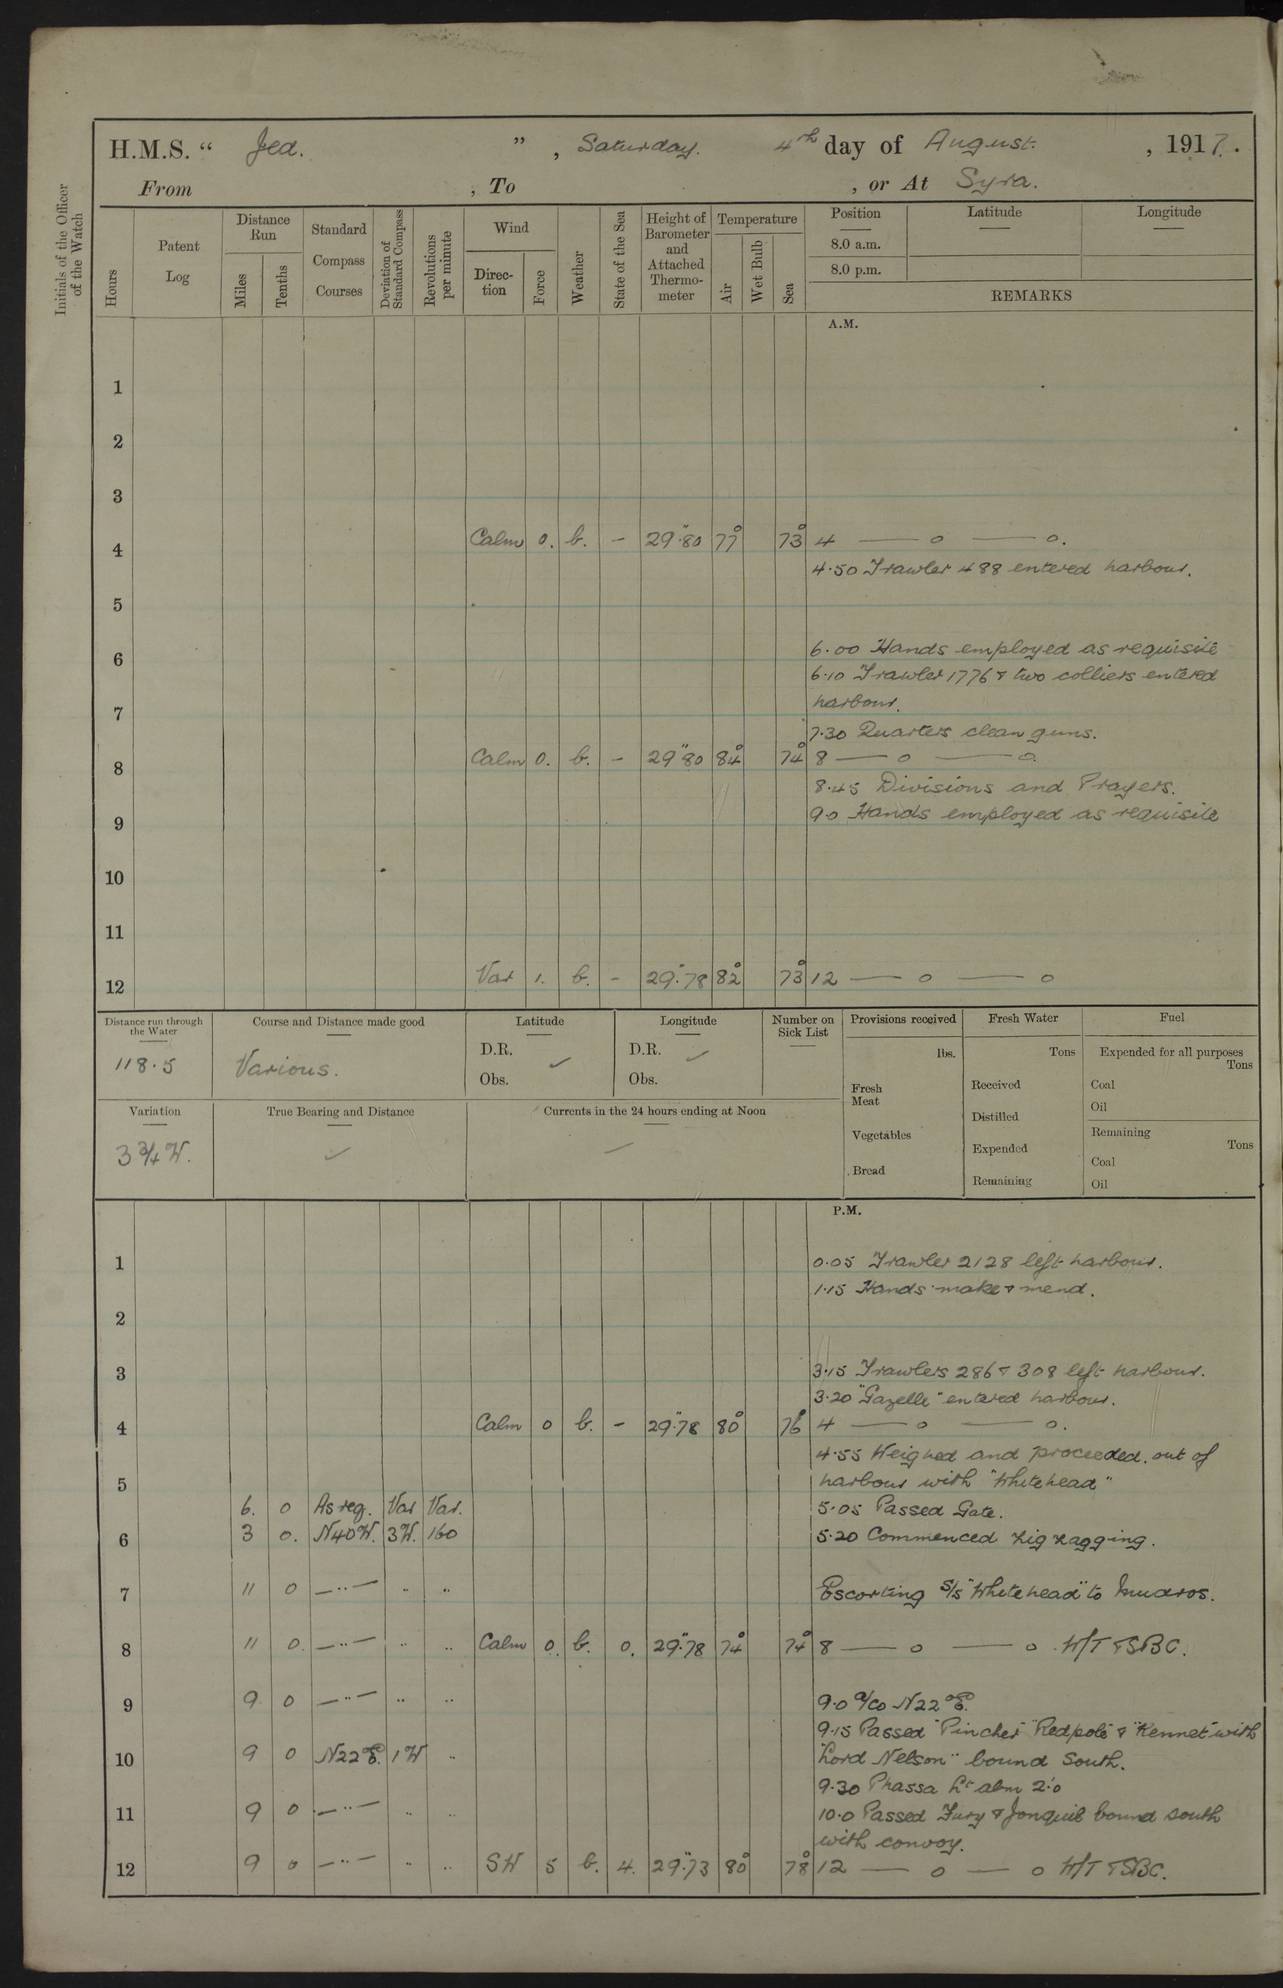 H.M.S. “ Jed. ” , Saturday. 4th day of August. , 1917.
From , To , or At Syra.
Initials of the Officer of the Watch
Hours
Patent Log
Distance Run
Miles
Tenths
Standard Compass Courses
Deviation of Standard Compass
Revolutions per minute
Wind
Direc-tion
Force
Weather
State of the Sea
Height of Barometer and Attached Thermo-meter
Temperature
Air
Wet Bulb
Sea
Position
8.0 a.m.
8.0 p.m.
Latitude
Longitude
REMARKS
A.M.
1
2
3
4 Calm 0. b. - 29".80 77° 73° 4 — o — o.
4.50 Trawler 488 entered harbour.
5
6 6.00 Hands employed as requisite
6.10 Trawler 1776 & two colliers entered
7 harbour.
7.30 Quarters clean guns.
8 Calm 0. b. - 29"80 84° 74° 8 — o — o.
8.45 Divisions and Prayers.
9 9.0 Hands employed as requisite
10
11
12 Var 1. b. - 29".78 82° 73° 12 — o — o
Distance run through the Water
118.5
Course and Distance made good
Various.
Latitude
D.R. ✓
Obs.
Longitude
D.R. ✓
Obs.
Number on Sick List
Provisions received
lbs.
Fresh Meat
Vegetables
Bread
Fresh Water
Tons
Received
Distilled
Expended
Remaining
Fuel
Expended for all purposes
Tons
Coal
Oil
Remaining
Tons
Coal
Oil
Variation
3¾W.
True Bearing and Distance
✓
Currents in the 24 hours ending at Noon
✓
P.M.
1 0.05 Trawler 2128 left harbour.
1.15 Hands make & mend.
2
3 3.15 Trawlers 286 & 308 left harbour.
3.20 "Gazelle" entered harbour.
4 Calm 0 b. - 29".78 80° 76° 4 — o — o.
4.55 Weighed and proceeded. out of
5 harbour with "Whitehead"
6. 0 As req. Var Var. 5.05 Passed Gate.
6 3 0. N40W. 3W. 160 5.20 Commenced zig zagging.
7 11 0 —..— .. .. Escorting S/S "Whitehead" to Mudros.
8 11 0. —..— .. .. Calm 0. b. 0. 29".78 74° 74° 8 — o — o. W/T & SBC.
9 9 0 —..— .. .. 9.0 a/co N22°E.
9.15 Passed "Pincher" "Redpole" & "Kennet" with
10 9 0 N22E. 1W .. "Lord Nelson" bound South.
9.30 Phassa Lt abm 2'.0
11 9 0 —..— .. .. 10.0 Passed Fury & Jonquil bound south
with convoy.
12 9 0 —..— .. .. SW 5 b. 4. 29".73 80° 78° 12 — o — o W/T & SBC.